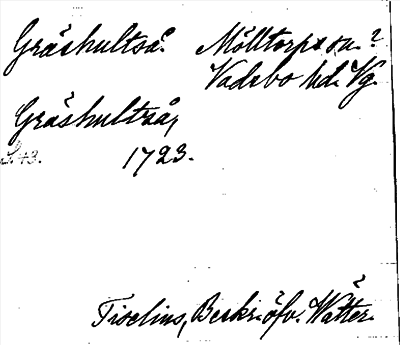 Gräshultså. Mölltorps sn.?
Vadsbo hd. Vg.
Gräshultså,
S. 43. 1723.
Tiselius, Beskr. öfv. Wätter.